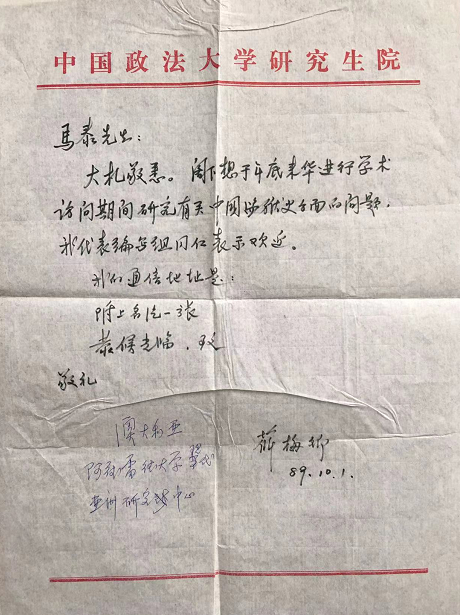 中国政法大学研究生院
馬泰先生：
大札敬悉。阁下想于年底来华进行学术
访问期间研究有关中国监狱史方面的问题，
我代表编写组同仁表示欢迎。
我的通信地址是：
附上名片一张
恭候光临，致
敬礼
薛梅卿
89.10.1.
澳大利亚
阿德雷德大学
亚洲研究中心